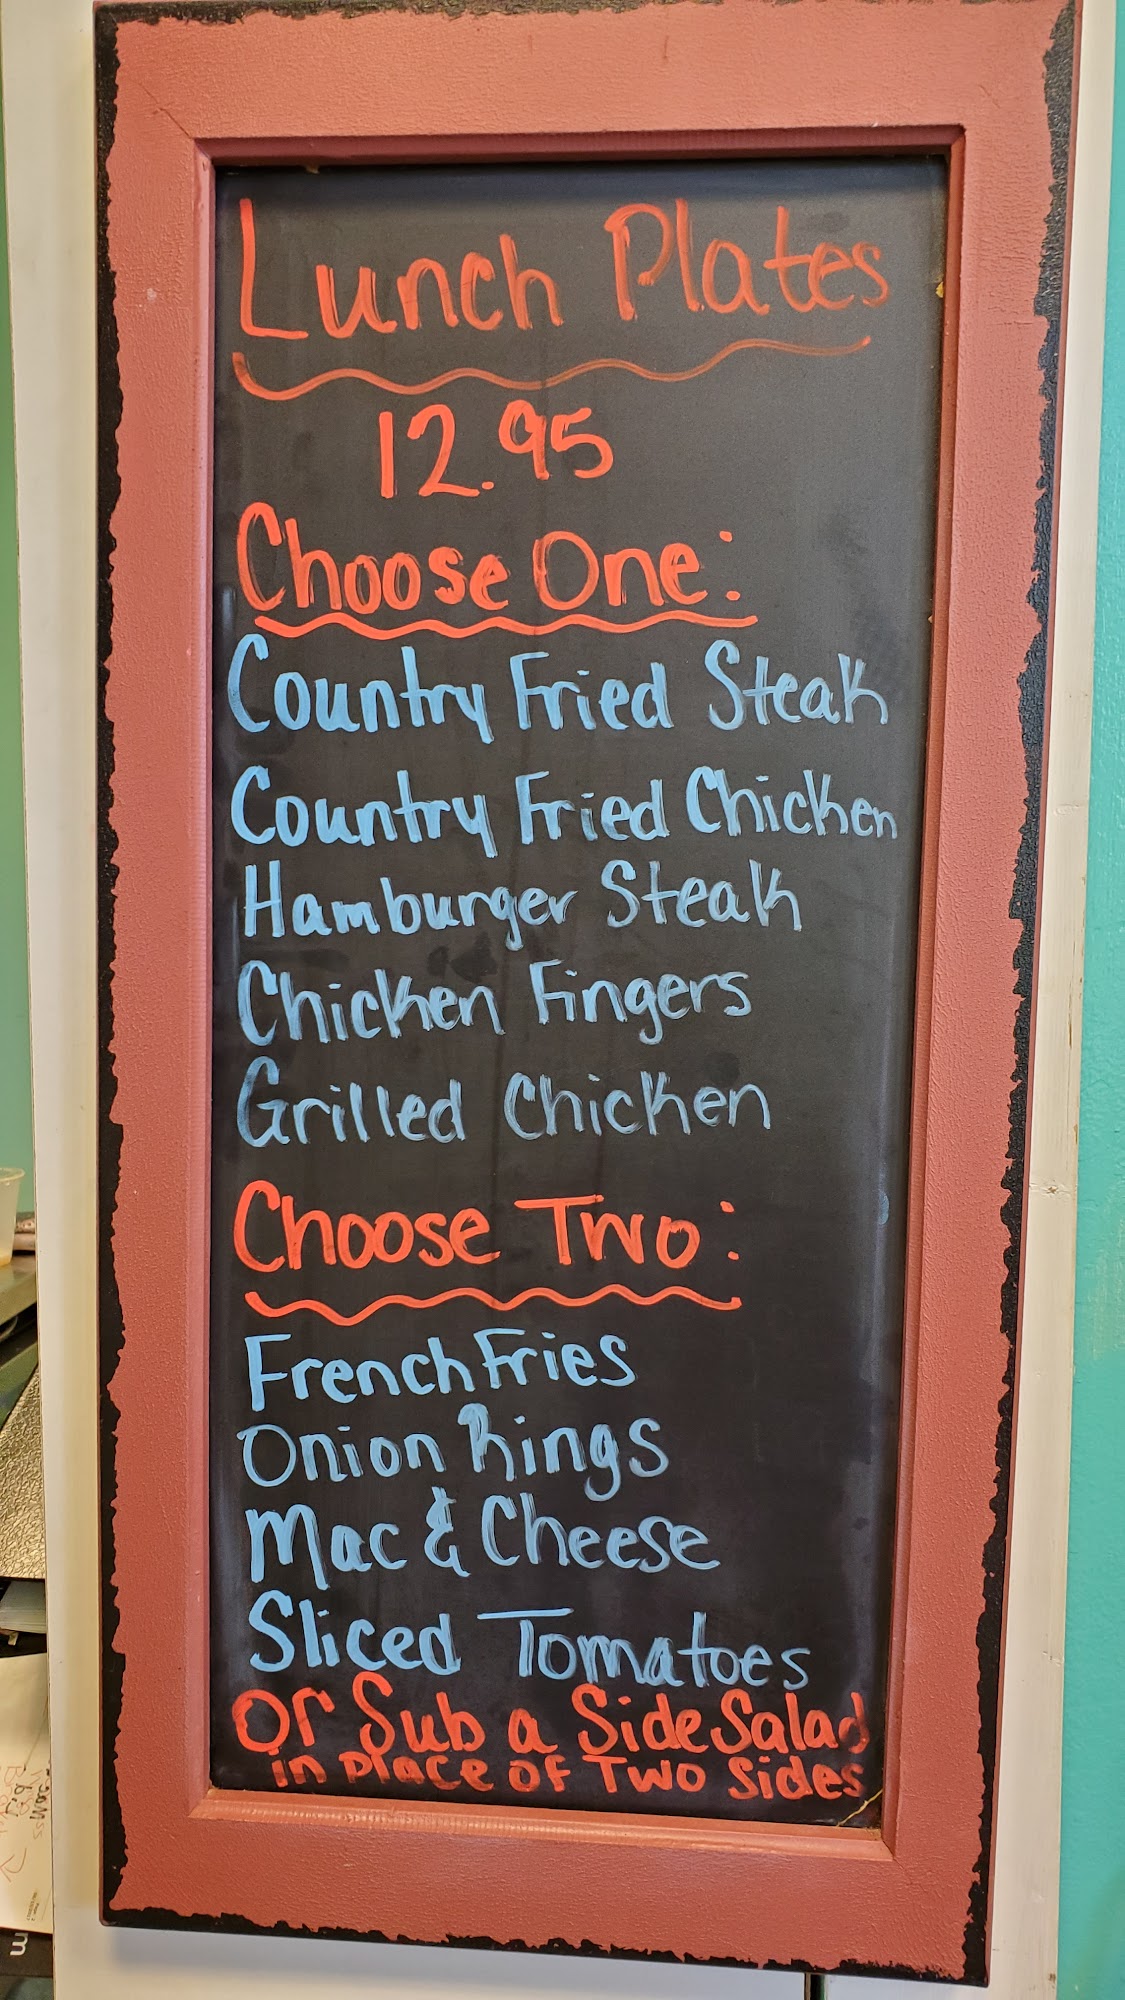 Lunch Plates
12.95
Choose One:
Country Fried Steak
Country Fried Chicken
Hamburger Steak
Chicken Fingers
Grilled Chicken
Choose Two:
French Fries
Onion Rings
Mac & Cheese
Sliced Tomatoes
Or Sub a Side Salad
in Place of Two Sides